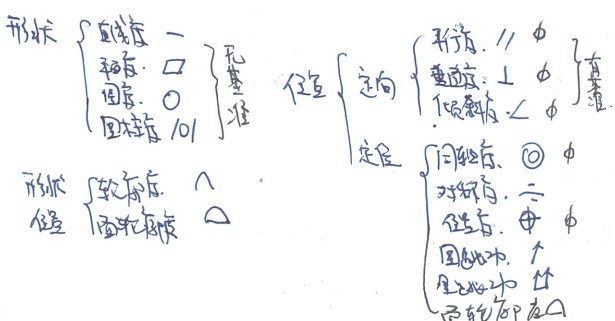 形状
直线度 —
平面度. ▱
圆度. ○
圆柱度 /○/
无基准
形状
位置
轮廓度. ⌒
面轮廓度 ⌓
位置
定向
平行度. // φ
垂直度. ⊥ φ
倾斜度. ∠ φ
有基准.
定位
同轴度. ◎ φ
对称度. ⌯
位置度. ⌖ φ
圆跳动. ↑
全跳动 ⇈
面轮廓度 ⌓